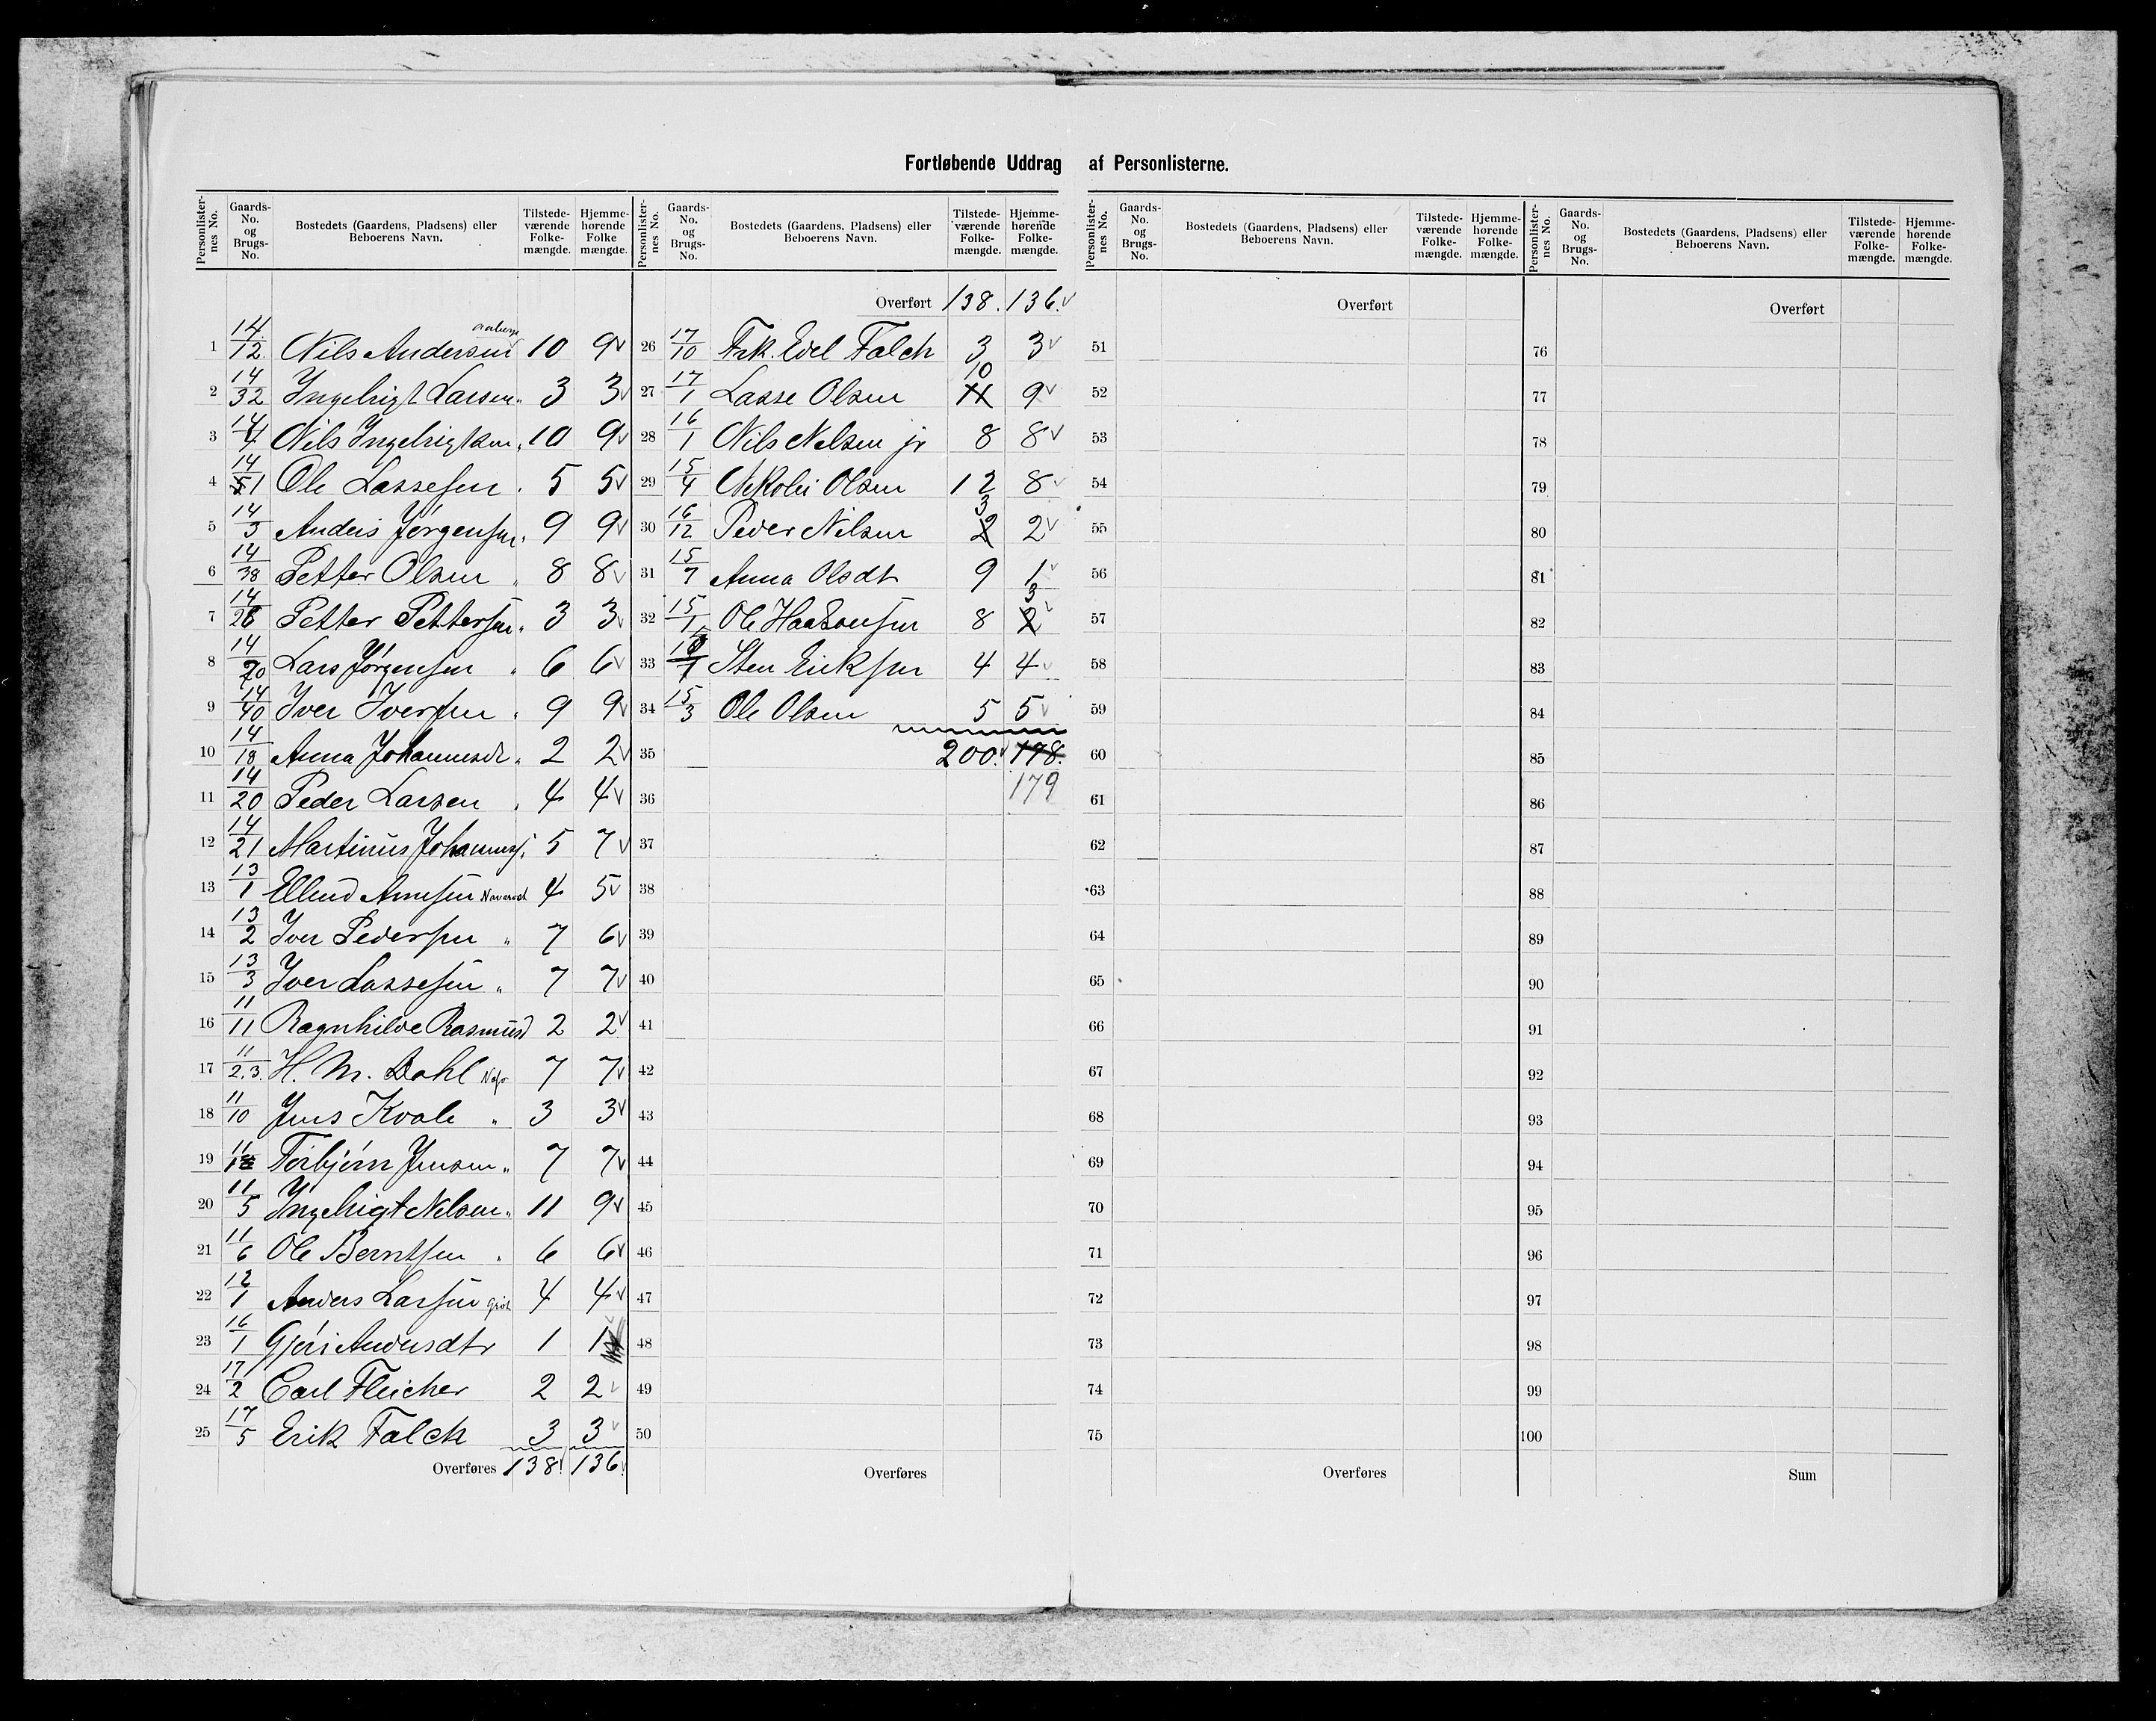 Fortløbende Uddrag af Personlisterne.
Personlister-nes No. | Gaards-No. og Brugs-No. | Bostedets (Gaardens, Pladsens) eller Beboerens Navn. | Tilstede-værende Folke-mængde. | Hjemme-hørende Folke mængde.
1 14/12 Nils Andersen 10 9
2 14/32 Ingebrigt Larsen " 3 3
3 14/4 Nils Ingebrigtsen " 10 9
4 14/51 Ole Lassesen " 5 5
5 14/3 Anders Jørgensen " 9 9
6 14/38 Petter Olsen " 8 8
7 14/26 Petter Pettersen " 3 3
8 14/70 Lars Jørgensen " 6 6
9 14/40 Iver Iversen " 9 9
10 14/18 Anna Johannesdt " 2 2
11 14/20 Peder Larsen " 4 4
12 14/21 Martinus Johanness " 5 7
13 13/1 Ellend Arnesen 4 5
14 13/2 Iver Pedersen " 7 6
15 13/3 Iver Lassesen " 7 7
16 11/11 Ragnhilde Rasmusd 2 2
17 11/2.3. H. M. Dahl 7 7
18 11/10 Jens Kvale " 3 3
19 Torbjørn Jensen " 7 7
20 11/5 Ingebrigt Nelsen " 11 9
21 11/6 Ole Berntsen " 6 6
22 12/1 Anders Larsen 4 4
23 16/1 Gjøri Andersdtr 1 1
24 17/2 Carl Fleicher 2 2
25 17/5 Erik Falch 3 3
Overføres 138 136
Personlister-nes No. | Gaards-No. og Brugs-No. | Bostedets (Gaardens, Pladsens) eller Beboerens Navn. | Tilstede-værende Folke-mængde. | Hjemme-hørende Folke-mængde.
Overført 138. 136.
26 17/10 Frk. Edel Falch 3 3
27 17/1 Lasse Olsen 11 10 9
28 16/1 Nils Nelsen jr 8 8
29 15/4 Nikolei Olsen 12 8
30 16/12 Peder Nilsen 2 3 2
31 15/7 Anna Olsdt 9 1
32 15/1 Ole Haakonsen 8 2 3
33 Sten Eriksen 4 4
34 15/3 Ole Olsen 5 5
35 200. 178.
36 179
37
38
39
40
41
42
43
44
45
46
47
48
49
50
Overføres
Personlister-nes No. | Gaards-No. og Brugs-No. | Bostedets (Gaardens, Pladsens) eller Beboerens Navn. | Tilstede-værende Folke-mængde. | Hjemme-hørende Folke-mængde.
Overført
51
52
53
54
55
56
57
58
59
60
61
62
63
64
65
66
67
68
69
70
71
72
73
74
75
Overføres
Personlister-nes No. | Gaards-No. og Brugs-No. | Bostedets (Gaardens, Pladsens) eller Beboerens Navn. | Tilstede-værende Folke-mængde. | Hjemme-hørende Folke-mængde.
Overført
76
77
78
79
80
81
82
83
84
85
86
87
88
89
90
91
92
93
94
95
96
97
98
99
100
Sum